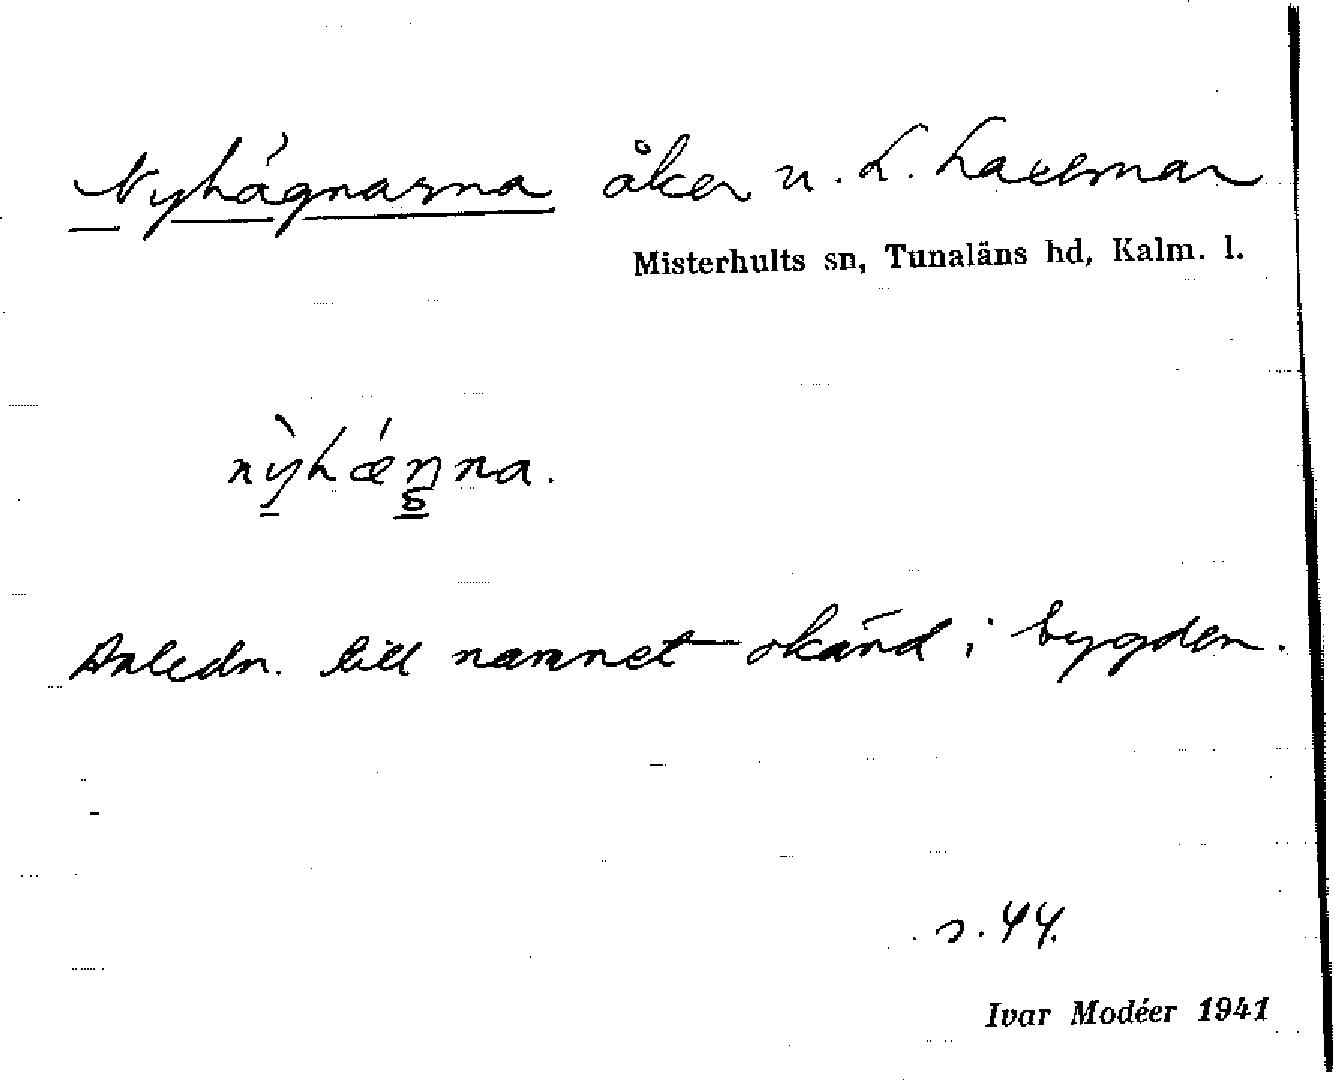 Nyhägnarna åker u. L. Laxemar
Misterhults sn, Tunaläns hd, Kalm. l.
nỳhǽŋna.
Anledn. till namnet okänd i bygden.
s. 44.
Ivar Modéer 1941